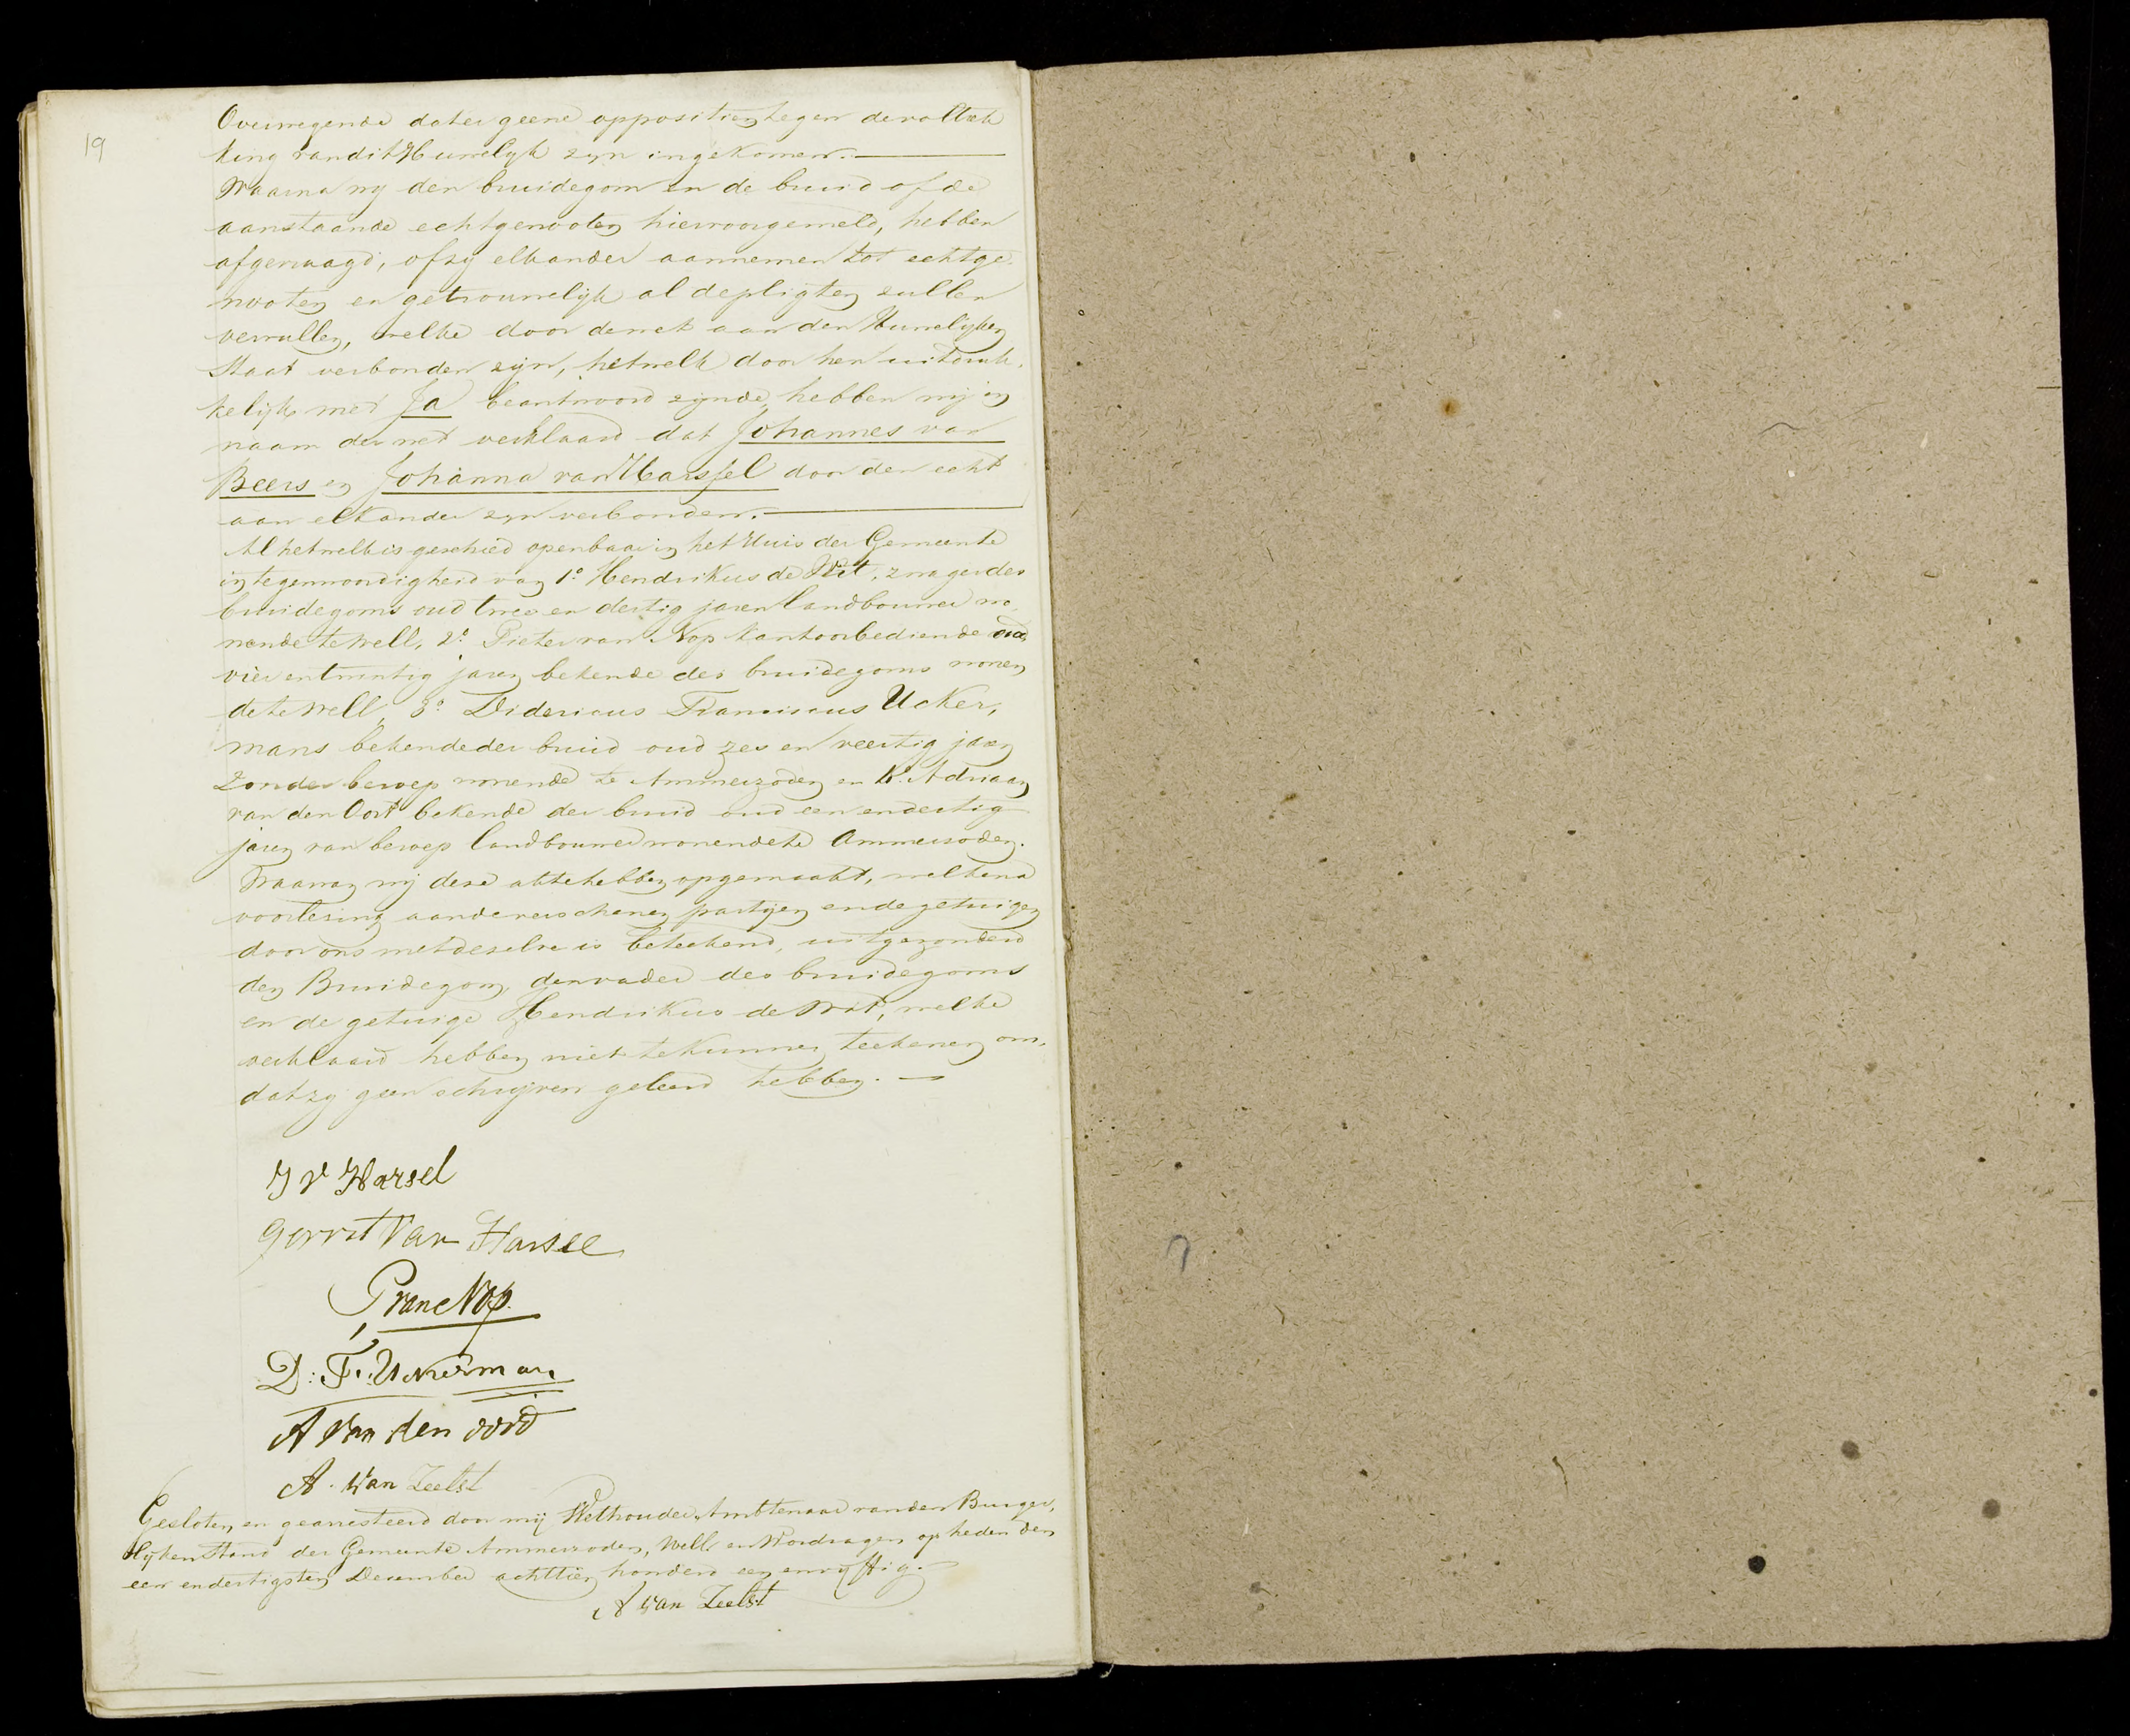 19
Overwegende dat er geene oppositien tegen de voltrek
king van dit Huwelijk zyn ingekomen.
Waarna wy den bruidegom en de bruid of de
aanstaande echtgenooten hiervoorgemeld, hebben
afgevraagd, of zy elkander aannemen tot echtge
nooten en getrouwelijk al de pligten zullen
vervullen, welke door de wet aan den Huwelijken
Staat verbonden zijn, hetwelk door hen uitdruk
kelijk met Ja beantwoord zijnde, hebben wij in
naam der wet verklaard dat Johannes van
Beers en Johanna van Harssel door den echt
aan elkander zyn verbonden.
Al hetwelk is geschied openbaar in het Huis der Gemeente
in tegenwoordigheid van 1o Hendrikus de Wit, zwager des
bruidegoms oud twee en dertig jaren landbouwer wo
nende te Well, 2o Pieter van Nop kantoorbediende oud
vier en twintig jaren bekende des bruidegoms wonen
de te Well, 3o Didericus Franciscus Ucker,
mans bekende der bruid oud zes en veertig jaren
zonder beroep wonende te Ammerzoden en 4o Adriaan
van den Oort bekende der bruid oud een en dertig
jaren van beroep landbouwer wonende te Ammersoden.
Waarvan wij deze akte hebben opgemaakt, welke na
voorlezing aan de verschenen partijen en de getuigen
door ons met dezelve is geteekend, uitgezonderd
den Bruidegom, den vader des bruidegoms
en de getuige Hendrikus de Wit, welke
verklaard hebben niet te kunnen teekenen om,
dat zy geen schrijven geleerd hebben.
J V Harsel
Gerrit Van Harsel
P van Nop.
D: F: Ukerman
A Van den oord
A. van Zeelst
Gesloten en gearresteerd door mij Wethouder Ambtenaar van den Burger,
lijken Stand der Gemeente Ammerzoden, Well en Wordragen op heden den
een en dertigsten December achttien honderd een en vyftig.
A van Zeelst